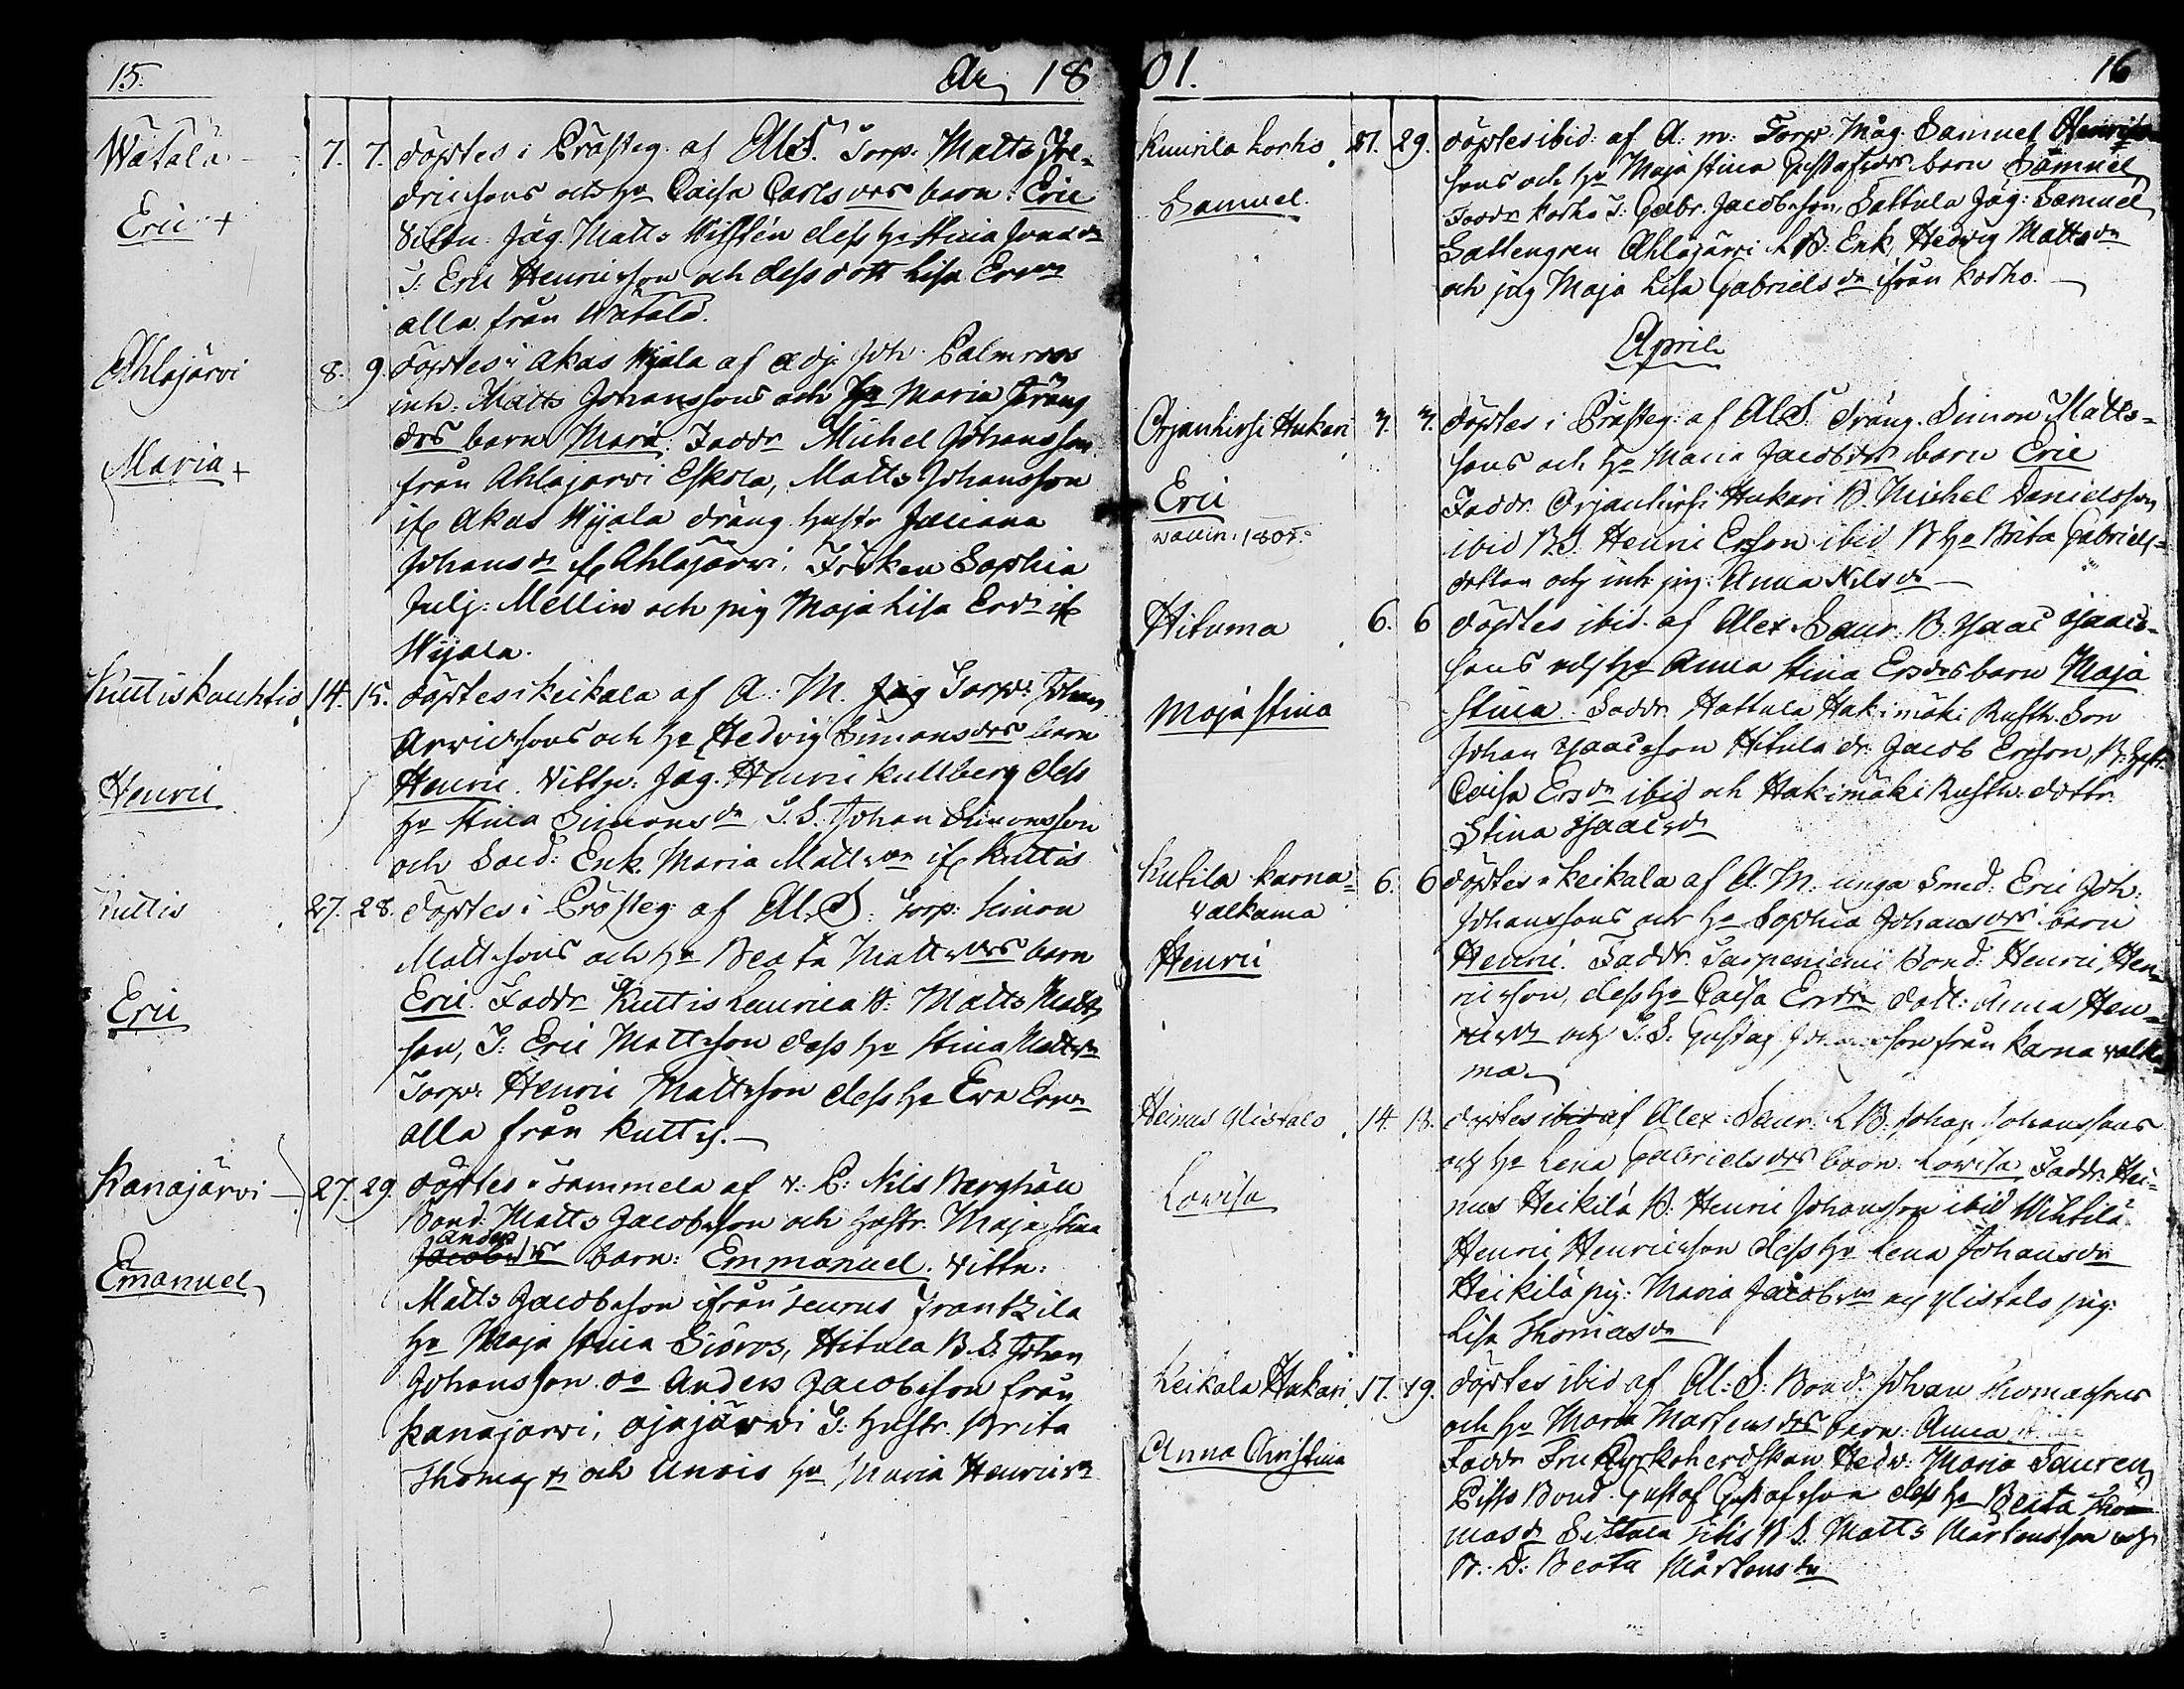 15. År 18
Watala 7. 7. döptes i Prästeg. af Al.S. Torp. Matts Fre-
dricsons och hu Caisa Carls drs barn: Eric
Eric + Vittn: Jäg. Matts dess hu Stina
T: Eric Henricsson och dess dott Lisa Ersdr
alla från Watala.
Ahlajärvi 8. 9. döptes i Akas Wijala af adj. Joh. Palmroos
inh: Matts Johanssons och Hu Maria
drs barn Maria. Faddr Michel Johansson
Maria +
från Ahlajarvi Eskola, Matts Johansson
if Akas Wijala dräng hustr Juliana
Johans dr if Ahlajärwi, Fröken Sophia
Julj: Mellin och pig Maja Lisa Ersdr if
Wijala.
Kuttiskauhtio 14. 15. döptes i Keikala af A: M. Torp: Johan
Arvidssons och hu Hedvig Simons drs barn
Henric Henric. Vittn: Jäg. Henric Kullberg dess
hu Stina Simons dr, T.S. Johan Simonsson
och Sold: Enk. Maria Matts dr if Kuttis
Kuttis 27. 28. döptes i Prästeg af Al.S: Torp: Simon
Mattssons och hu Beata Matts drs barn
Eric Eric. Faddr Kuttis Laurica B: Matts Matts
son, T: Eric Mattsson dess hu Stina Matts dr
Torp: Henric Mattsson dess hu Eva Ersdr
alla från Kuttis.
Kanajärvi 27. 29. döptes i Tammela af v: P: Nils Berghäll
Bond: Matts Jacobsson och hustr. Maja Stina
Anders
Jacobs dr barn: Emmanuel. Vittn:
Emanuel
Matts Jacobsson ifrån Teurus Frantzila
hu Maja Stina Siöros, Hitula B.S. Johan
Johansson. Anders Jacobsson från
Kanajarwi, Ojajärwi T: hustr. Brita
Thomas dr och Unois hu Maria Henrics dr
01. 16
Kuurila Korho 27. 29. döptes ibid: af A: m: Torp: Måg Samuel Henrics
sons och hu Maja Stina Gustafs drs barn Samuel
Samuel. Faddr Korho T: Gabr. Jacobsson, Sattula Jäg: Samuel
Sattengren Ahlajärvi L.B: Enk. Hedvig Matts dr
och pig Maja Lisa Gabriels dr ifrån Korho.
April
Orjanhirsi Hukari 3. 3. döptes i Prästeg: af Al.S. dräng. Simon Matts-
sons och hu Maria Jacobs drs barn Eric
Eric Faddr. Orjanhirsi Hukari B. Michel Danielsson
vaccin. 1805. ibid B.S. Henric Ersson ibid B hu Brita Gabriels-
dotter och inh pig: Anna Nils dr
Hituma 6. 6 döptes ibid. af Alex. Saur: B: Isaac Isaacs-
sons och hu Anna Stina Ers drs barn Maja
Maja Stina Stina. Faddr. Hattula Hakimäki Rusth. Son
Johan Isaacsson Hitula dr. Jacob Ersson, B: hstr.
Caisa Ers dr ibid och Hakimäki Rusth: dottr.
Stina Isaacs dr
Kutila Karna- 6. 6 döptes i Keikala af A: M: unga Smed: Eric Joh:
valkama Johanssons och hu Sophia Johans drs barn
Henric Henric. Faddr: Sarpeniemi Bond: Henric Hen-
ricsson, dess hu Caisa Ersdr dott: Anna Hen-
rics dr och T.S. Gustaf Johansson från Karna valka-
ma.
Heinus Ylistalo 14. 18. döptes ibid af Alex: Saur: L.B: Johan Johanssons
och hu Lena Gabriels drs barn: Lowisa. Faddr: Hei-
Lowisa nus Heikilä B: Henric Johansson ibid Wihtilä
Henric Henricsson dess hu Lena Johans dr
Heikilä pig: Maria Jacobs dr och Ylistalo pig:
Lisa Thomas dr
Keikala Hukari 17. 19. döptes ibid af Al: S: Bond: Johan Thomassons
och hu Maria Martens drs barn: Anna Stina
Anna Christina Faddr Fru Kyrkoherdskan Hedv: Maria Sauren
Bond. Gustaf Gustafsson dess hu Beata Tho-
mas dr B.S. Matts Mårtensson och
B: D: Beata Mårtens dr